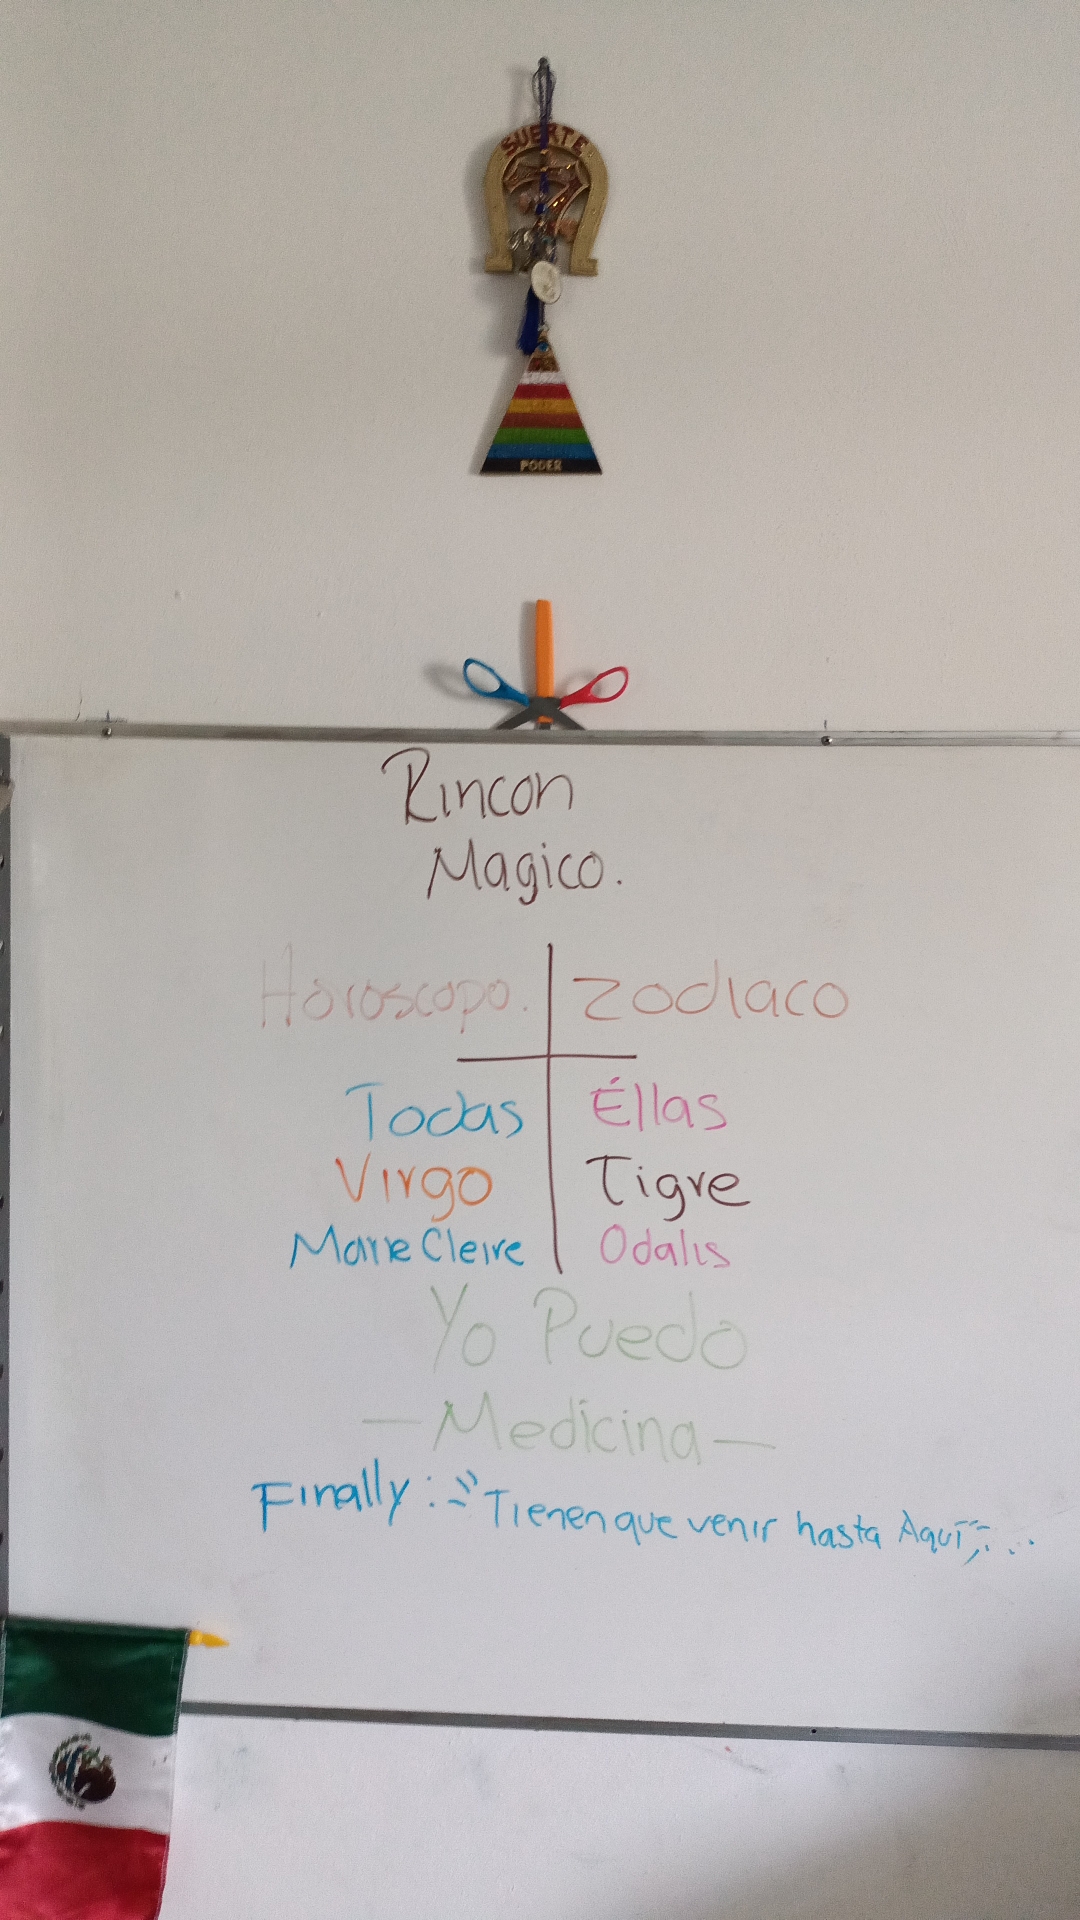 SUERTE
7
PODER
Rincon
Magico.
Horoscopo. Zodiaco
Todas Éllas
Virgo Tigre
Marie Cleire Odalis
Yo Puedo
— Medicina —
Finally: "Tienen que venir hasta Aquí"...